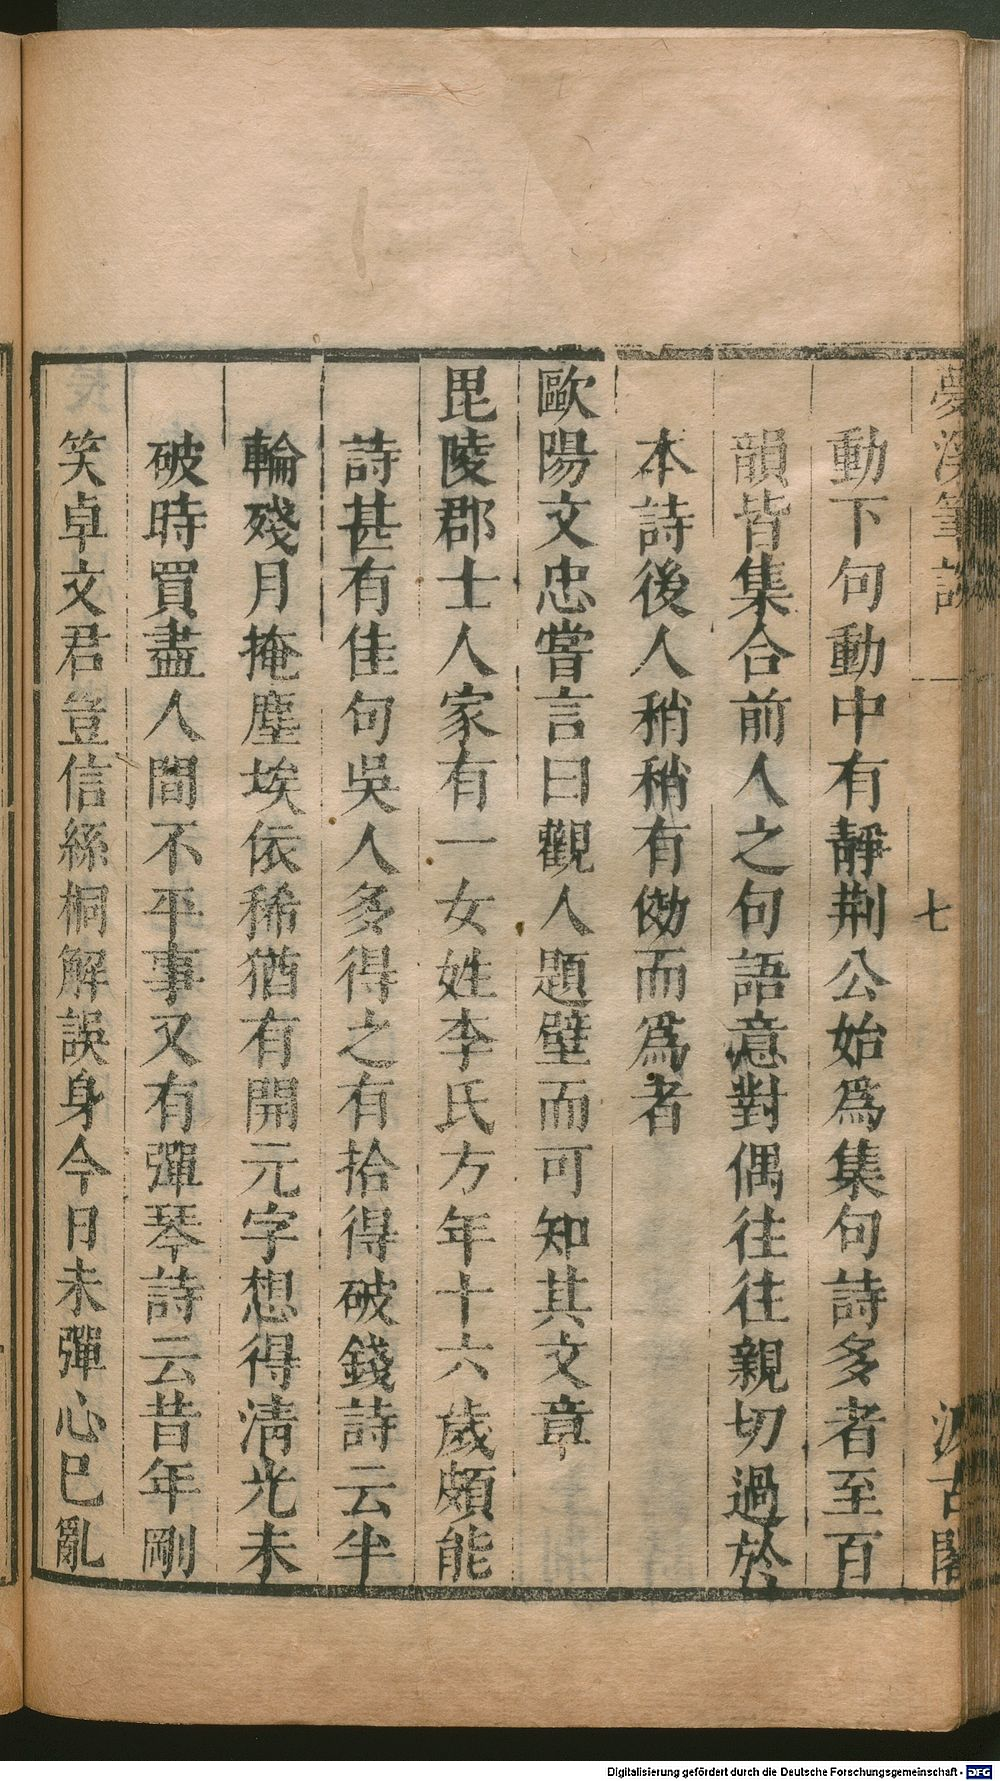 夢溪筆談
七
汲古閣
動下句動中有靜荆公始爲集句詩多者至百
韻皆集合前人之句語意對偶往往親切過於
本詩後人稍稍有傚而爲者
歐陽文忠嘗言曰觀人題壁而可知其文章
毘陵郡士人家有一女姓李氏方年十六歲頗能
詩甚有佳句吳人多得之有拾得破錢詩云半
輪殘月掩塵埃依稀猶有開元字想得淸光未
破時買盡人間不平事又有彈琴詩云昔年剛
笑卓文君豈信絲桐解誤身今日未彈心已亂
Digitalisierung gefördert durch die Deutsche Forschungsgemeinschaft - DFG